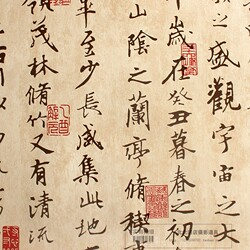 之盛觀宇宙之大
歲在癸丑暮春之初
山陰之蘭亭脩禊
至少長咸集此地
茂林脩竹又有清流